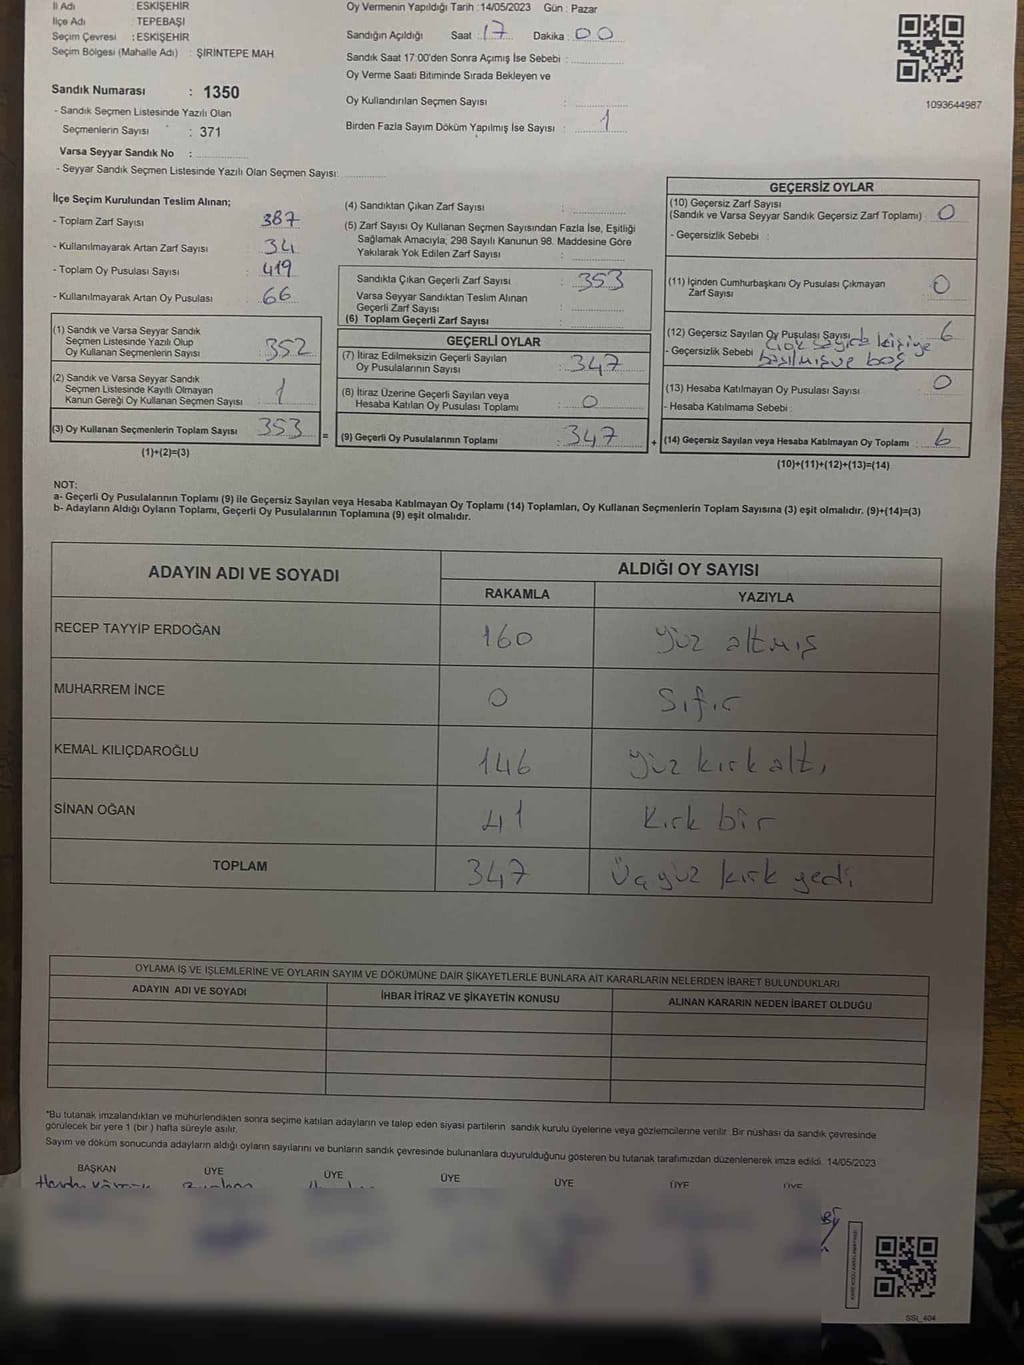 İl Adı : ESKİŞEHİR
İlçe Adı : TEPEBAŞI
Seçim Çevresi : ESKİŞEHİR
Seçim Bölgesi (Mahalle Adı) : ŞİRİNTEPE MAH
Sandık Numarası : 1350
- Sandık Seçmen Listesinde Yazılı Olan
Seçmenlerin Sayısı : 371
Varsa Seyyar Sandık No :
- Seyyar Sandık Seçmen Listesinde Yazılı Olan Seçmen Sayısı:
Oy Vermenin Yapıldığı Tarih : 14/05/2023 Gün : Pazar
Sandığın Açıldığı Saat : 17 Dakika : 00
Sandık Saat 17:00'den Sonra Açımış İse Sebebi :
Oy Verme Saati Bitiminde Sırada Bekleyen ve
Oy Kullandırılan Seçmen Sayısı :
Birden Fazla Sayım Döküm Yapılmış İse Sayısı : 1
1093644987
İlçe Seçim Kurulundan Teslim Alınan;
- Toplam Zarf Sayısı : 387
- Kullanılmayarak Artan Zarf Sayısı : 34
- Toplam Oy Pusulası Sayısı : 419
- Kullanılmayarak Artan Oy Pusulası : 66
(1) Sandık ve Varsa Seyyar Sandık
Seçmen Listesinde Yazılı Olup
Oy Kullanan Seçmenlerin Sayısı : 352
(2) Sandık ve Varsa Seyyar Sandık
Seçmen Listesinde Kayıtlı Olmayan
Kanun Gereği Oy Kullanan Seçmen Sayısı : 1
(3) Oy Kullanan Seçmenlerin Toplam Sayısı : 353
(1)+(2)=(3)
(4) Sandıktan Çıkan Zarf Sayısı :
(5) Zarf Sayısı Oy Kullanan Seçmen Sayısından Fazla İse, Eşitliği
Sağlamak Amacıyla; 298 Sayılı Kanunun 98. Maddesine Göre
Yakılarak Yok Edilen Zarf Sayısı :
Sandıkta Çıkan Geçerli Zarf Sayısı : 353
Varsa Seyyar Sandıktan Teslim Alınan
Geçerli Zarf Sayısı :
(6) Toplam Geçerli Zarf Sayısı :
GEÇERLİ OYLAR
(7) İtiraz Edilmeksizin Geçerli Sayılan
Oy Pusulalarının Sayısı : 347
(8) İtiraz Üzerine Geçerli Sayılan veya
Hesaba Katılan Oy Pusulası Toplamı : 0
= (9) Geçerli Oy Pusulalarının Toplamı : 347 +
GEÇERSİZ OYLAR
(10) Geçersiz Zarf Sayısı
(Sandık ve Varsa Seyyar Sandık Geçersiz Zarf Toplamı) : 0
- Geçersizlik Sebebi :
(11) İçinden Cumhurbaşkanı Oy Pusulası Çıkmayan
Zarf Sayısı : 0
(12) Geçersiz Sayılan Oy Pusulası Sayısı : 6
- Geçersizlik Sebebi : Çok sayıda kişiye
basılmış ve boş
(13) Hesaba Katılmayan Oy Pusulası Sayısı : 0
- Hesaba Katılmama Sebebi :
(14) Geçersiz Sayılan veya Hesaba Katılmayan Oy Toplamı : 6
(10)+(11)+(12)+(13)=(14)
NOT:
a- Geçerli Oy Pusulalarının Toplamı (9) ile Geçersiz Sayılan veya Hesaba Katılmayan Oy Toplamı (14) Toplamları, Oy Kullanan Seçmenlerin Toplam Sayısına (3) eşit olmalıdır. (9)+(14)=(3)
b- Adayların Aldığı Oyların Toplamı, Geçerli Oy Pusulalarının Toplamına (9) eşit olmalıdır.
ADAYIN ADI VE SOYADI ALDIĞI OY SAYISI
RAKAMLA YAZIYLA
RECEP TAYYİP ERDOĞAN 160 Yüz altmış
MUHARREM İNCE 0 Sıfır
KEMAL KILIÇDAROĞLU 146 Yüz kırk altı
SİNAN OĞAN 41 Kırk bir
TOPLAM 347 Üç yüz kırk yedi
OYLAMA İŞ VE İŞLEMLERİNE VE OYLARIN SAYIM VE DÖKÜMÜNE DAİR ŞİKAYETLERLE BUNLARA AİT KARARLARIN NELERDEN İBARET BULUNDUKLARI
ADAYIN ADI VE SOYADI İHBAR İTİRAZ VE ŞİKAYETİN KONUSU ALINAN KARARIN NEDEN İBARET OLDUĞU
*Bu tutanak imzalandıktan ve mühürlendikten sonra seçime katılan adayların ve talep eden siyasi partilerin sandık kurulu üyelerine veya gözlemcilerine verilir. Bir nüshası da sandık çevresinde
görülecek bir yere 1 (bir ) hafta süreyle asılır.
Sayım ve döküm sonucunda adayların aldığı oyların sayılarını ve bunların sandık çevresinde bulunanlara duyurulduğunu gösteren bu tutanak tarafımızdan düzenlenerek imza edildi. 14/05/2023
BAŞKAN ÜYE ÜYE ÜYE ÜYE ÜYE ÜYE
SSI_404